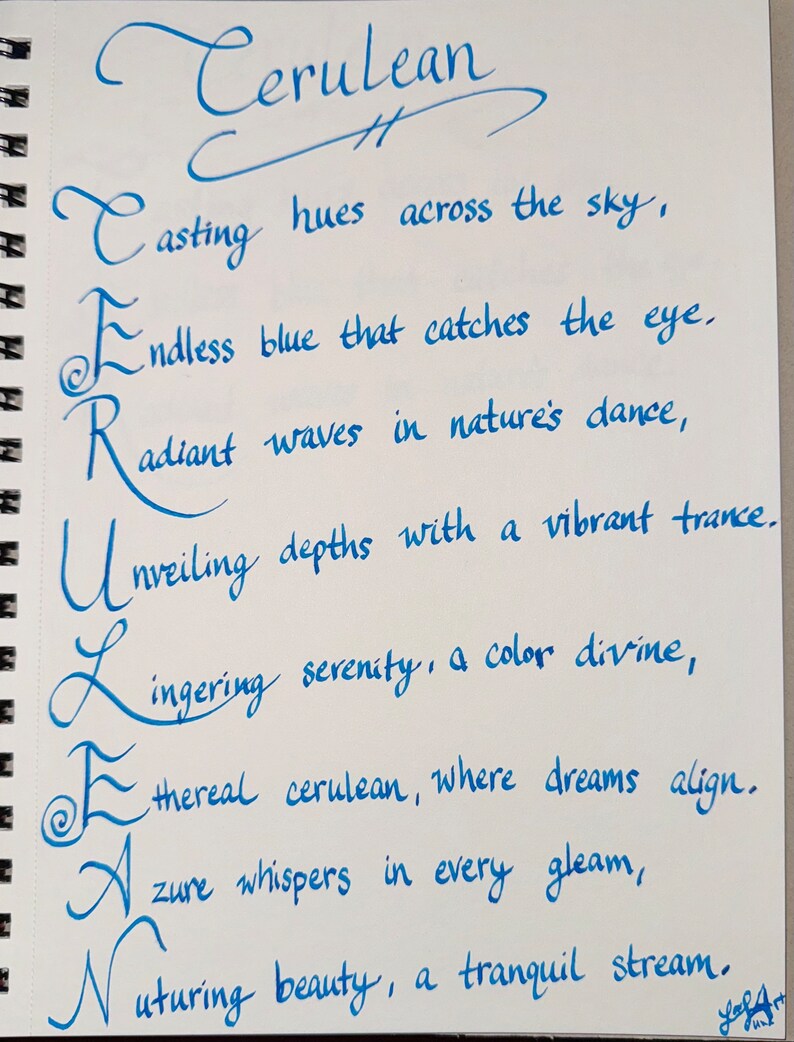 Cerulean
Casting hues across the sky,
Endless blue that catches the eye.
Radiant waves in nature's dance,
Unveiling depths with a vibrant trance.
Lingering serenity, a color divine,
Ethereal cerulean, where dreams align.
Azure whispers in every gleam,
Nuturing beauty, a tranquil stream.